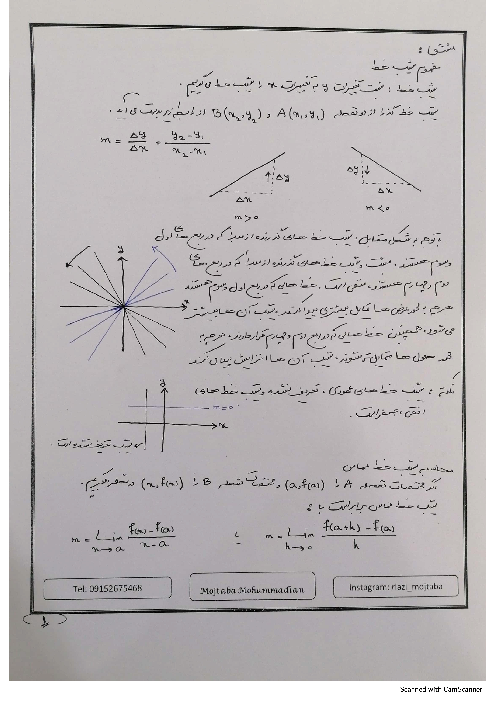 مشتق:
مفهوم شیب خط
شیب خط: نسبت تغییرات y به تغییرات x را شیب خط می گوییم.
شیب خط گذرا از دو نقطه A(x₁,y₁) و B(x₂,y₂) از رابطه زیر بدست می آید.
m = Δy/Δx = (y₂-y₁)/(x₂-x₁)
Δy Δy
Δx Δx
m>0 m<0
با توجه به شکل مقابل، شیب خط های گذرنده از مبدا که در ربع های اول
وسوم هستند، مثبت و شیب خط های گذرنده از مبدا که در ربع های
دوم و چهارم هستند، منفی است. خط هایی که در ربع اول وسوم هستند
هرچه به محور ها تمایل بیشتری پیدا کنند شیب آن ها بیشتر
می شود. همچنان خط هایی که در ربع دوم و چهارم قرار دارند، هرچه به
محور ها متمایل تر شوند، شیب آن ها افزایش پیدا می کند
y
x
نکته: شیب خط های عمودی، تعریف نشده و شیب خط های
افقی، صفر است.
y
m=0
x
شیب تعریف نشده است.
محاسبه شیب خط مماس
اگر مختصات نقطه A را (a,f(a)) و مختصات نقطه B را (x,f(x)) در نظر بگیریم.
شیب خط مماس برابر است با:
m = Lim x→a (f(x)-f(a))/(x-a) یا m = Lim h→0 (f(a+h)-f(a))/h
Tel: 09152675468 Mojtaba Mohammadian Instagram: riazi_mojtaba
1
Scanned with CamScanner